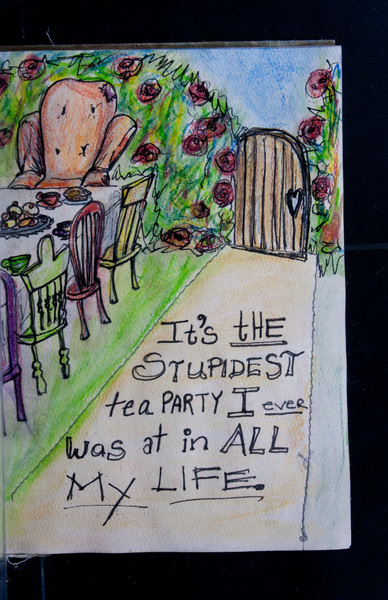 It's tHE
STUPIDEST
tea PARTY I ever
was at in ALL
My LIFE.